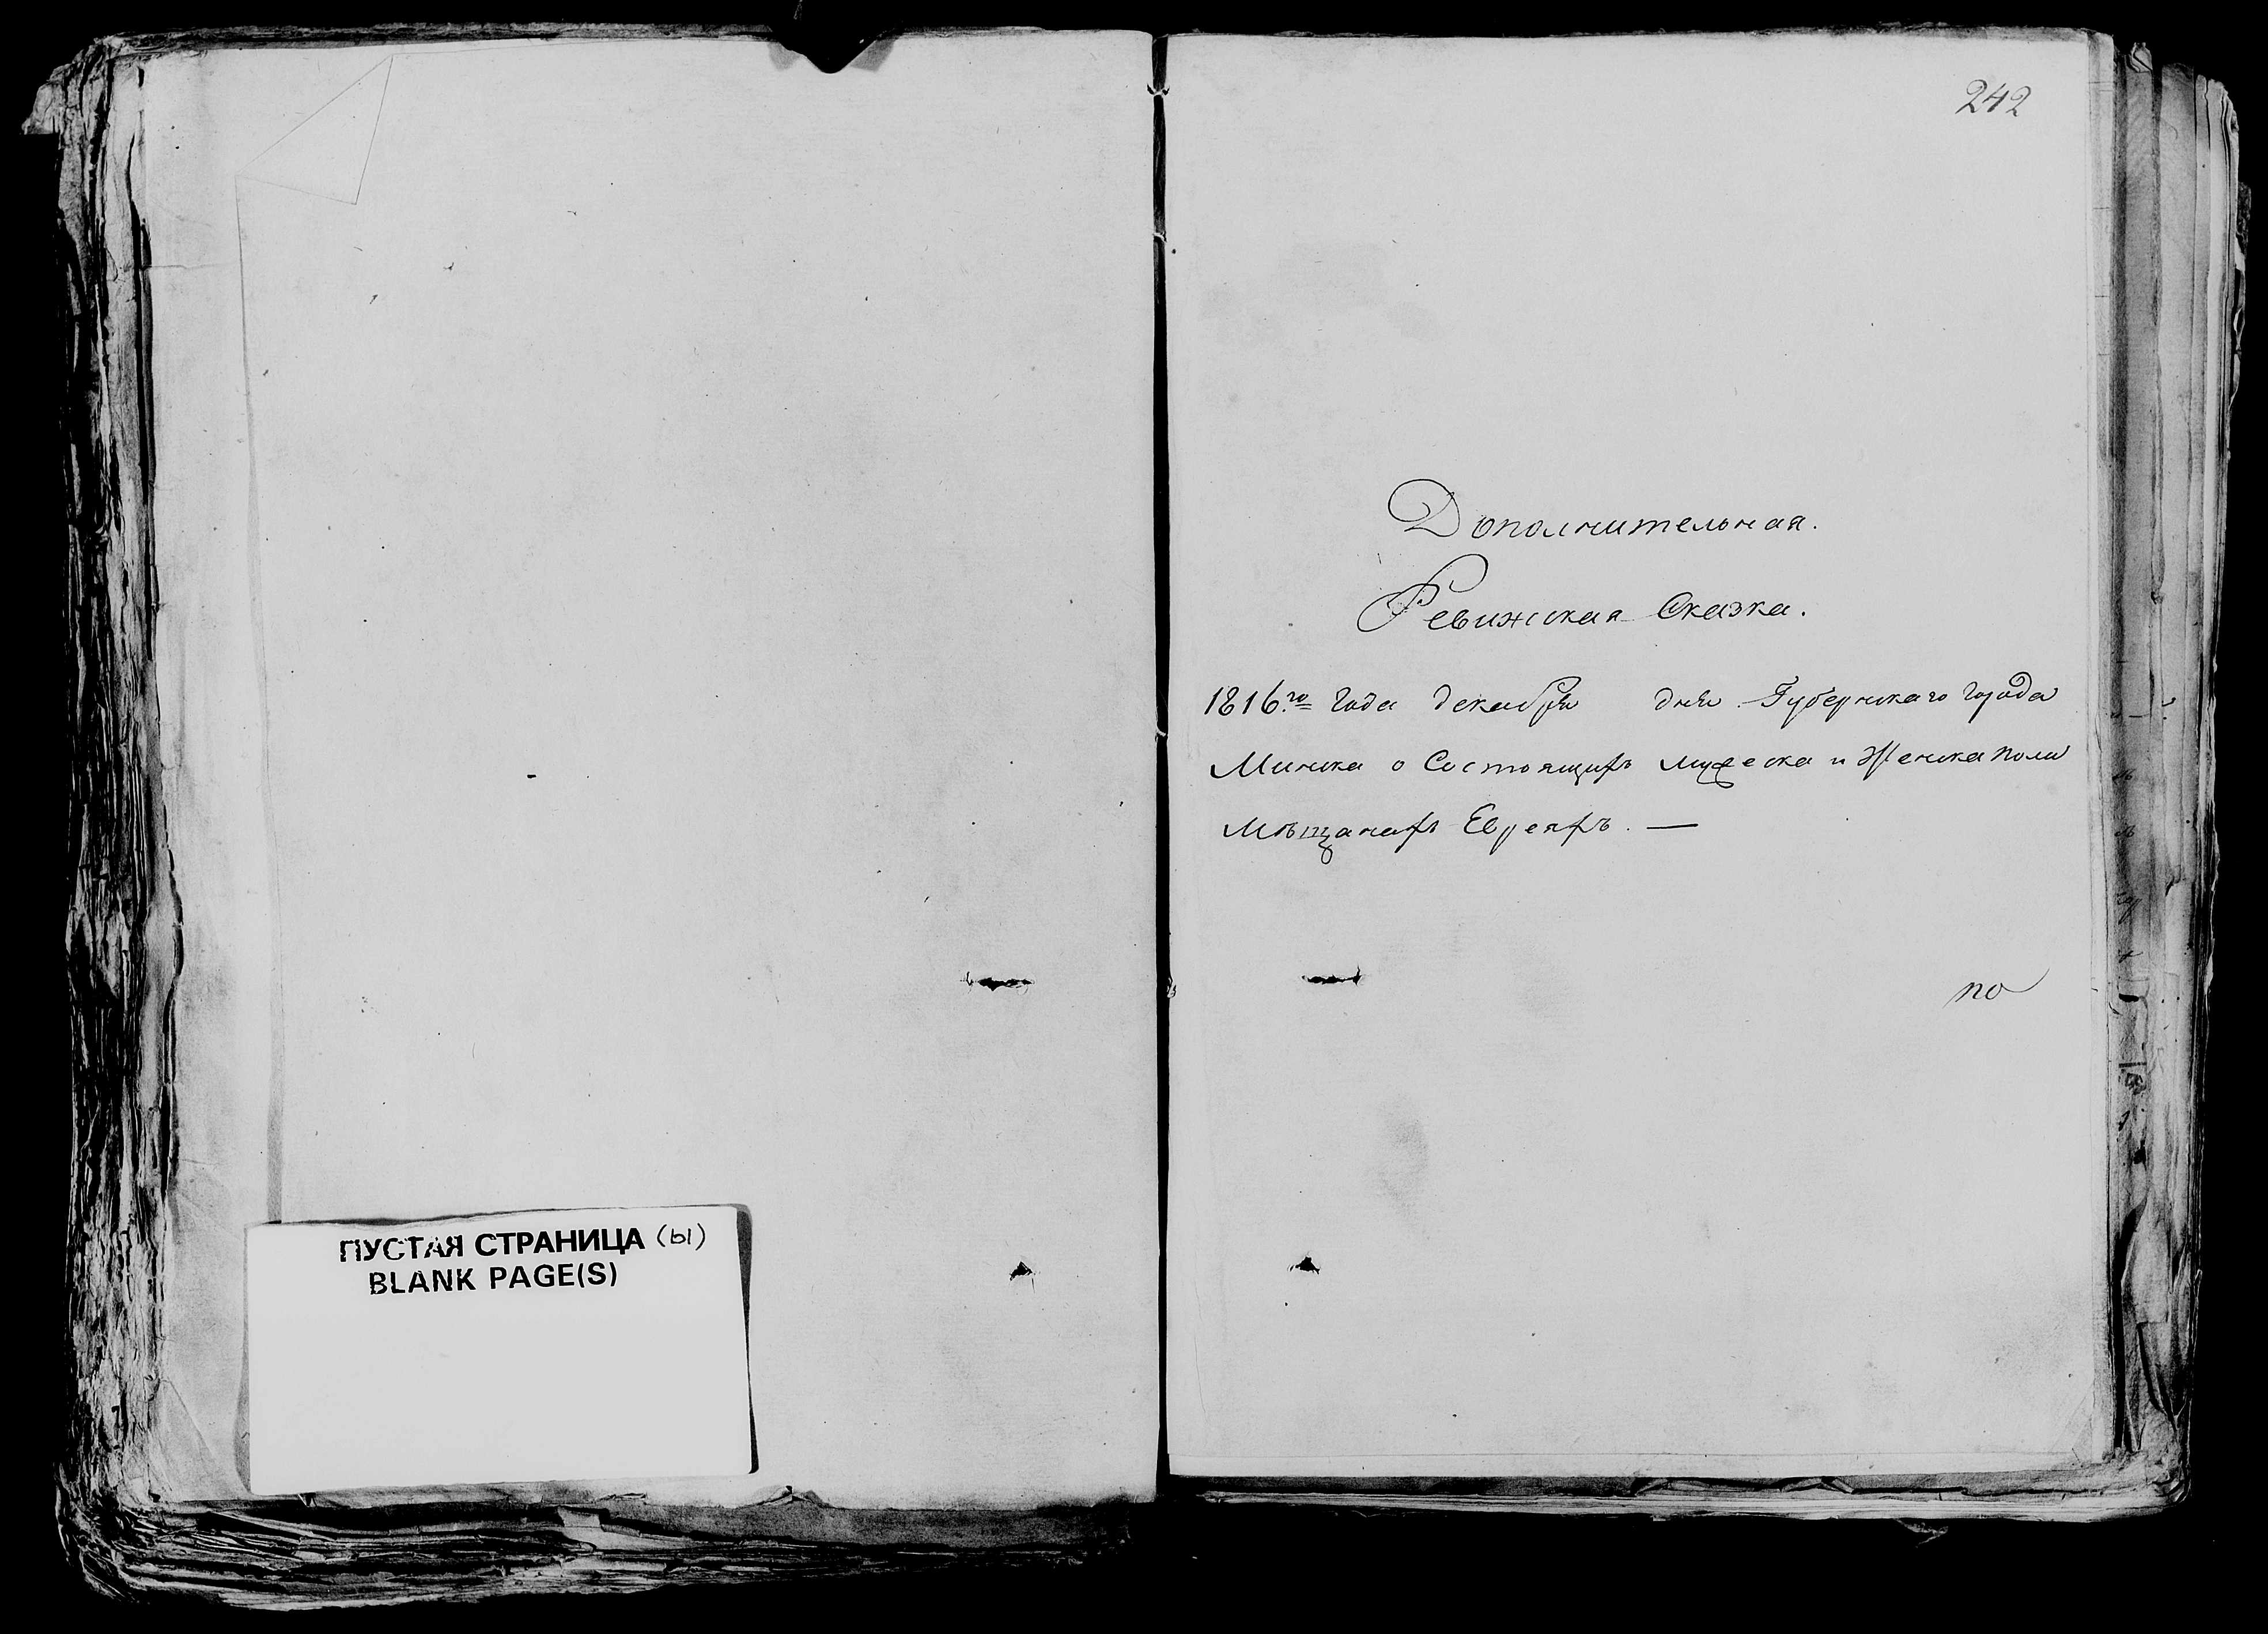 ПУСТАЯ СТРАНИЦА (ы)
BLANK PAGE(S)
242
Дополнительная.
Ревижская Сказка.
1816.го года декабря дня Губернскаго города
Минска о Состоящихъ мужеска и Женска пола
Мѣщанахъ Евреяхъ. —
по